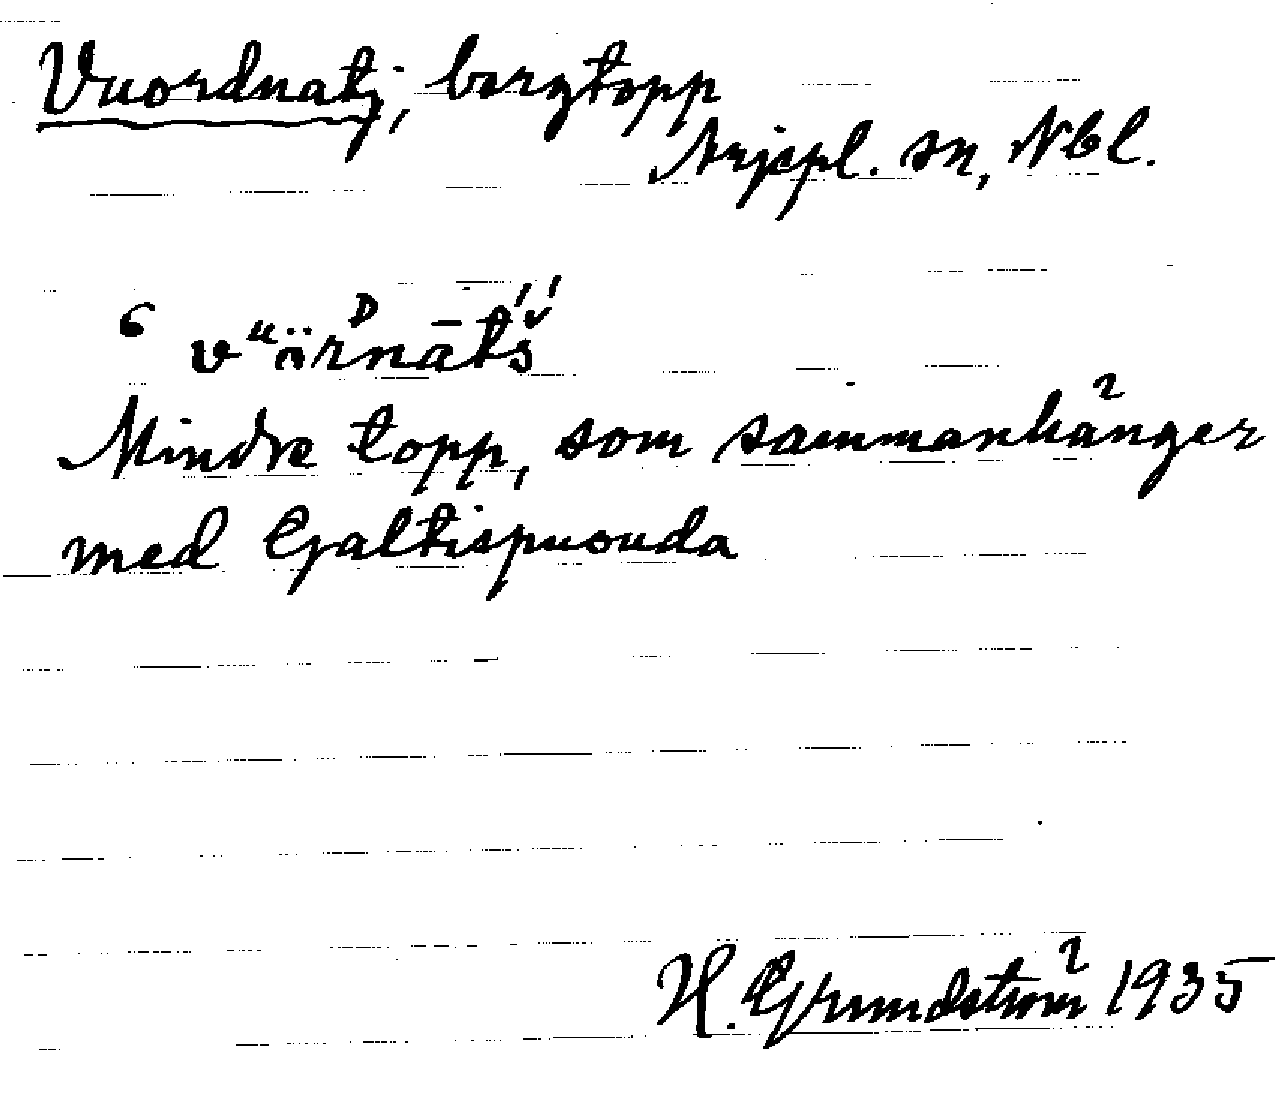 Vuordnatj, bergtopp
Arjepl. sn, Nbl.
‘vᵘör̆ᴰnāt́š́
Mindre topp, som sammanhänger
med Galtispuouda
H. Grundström 1935